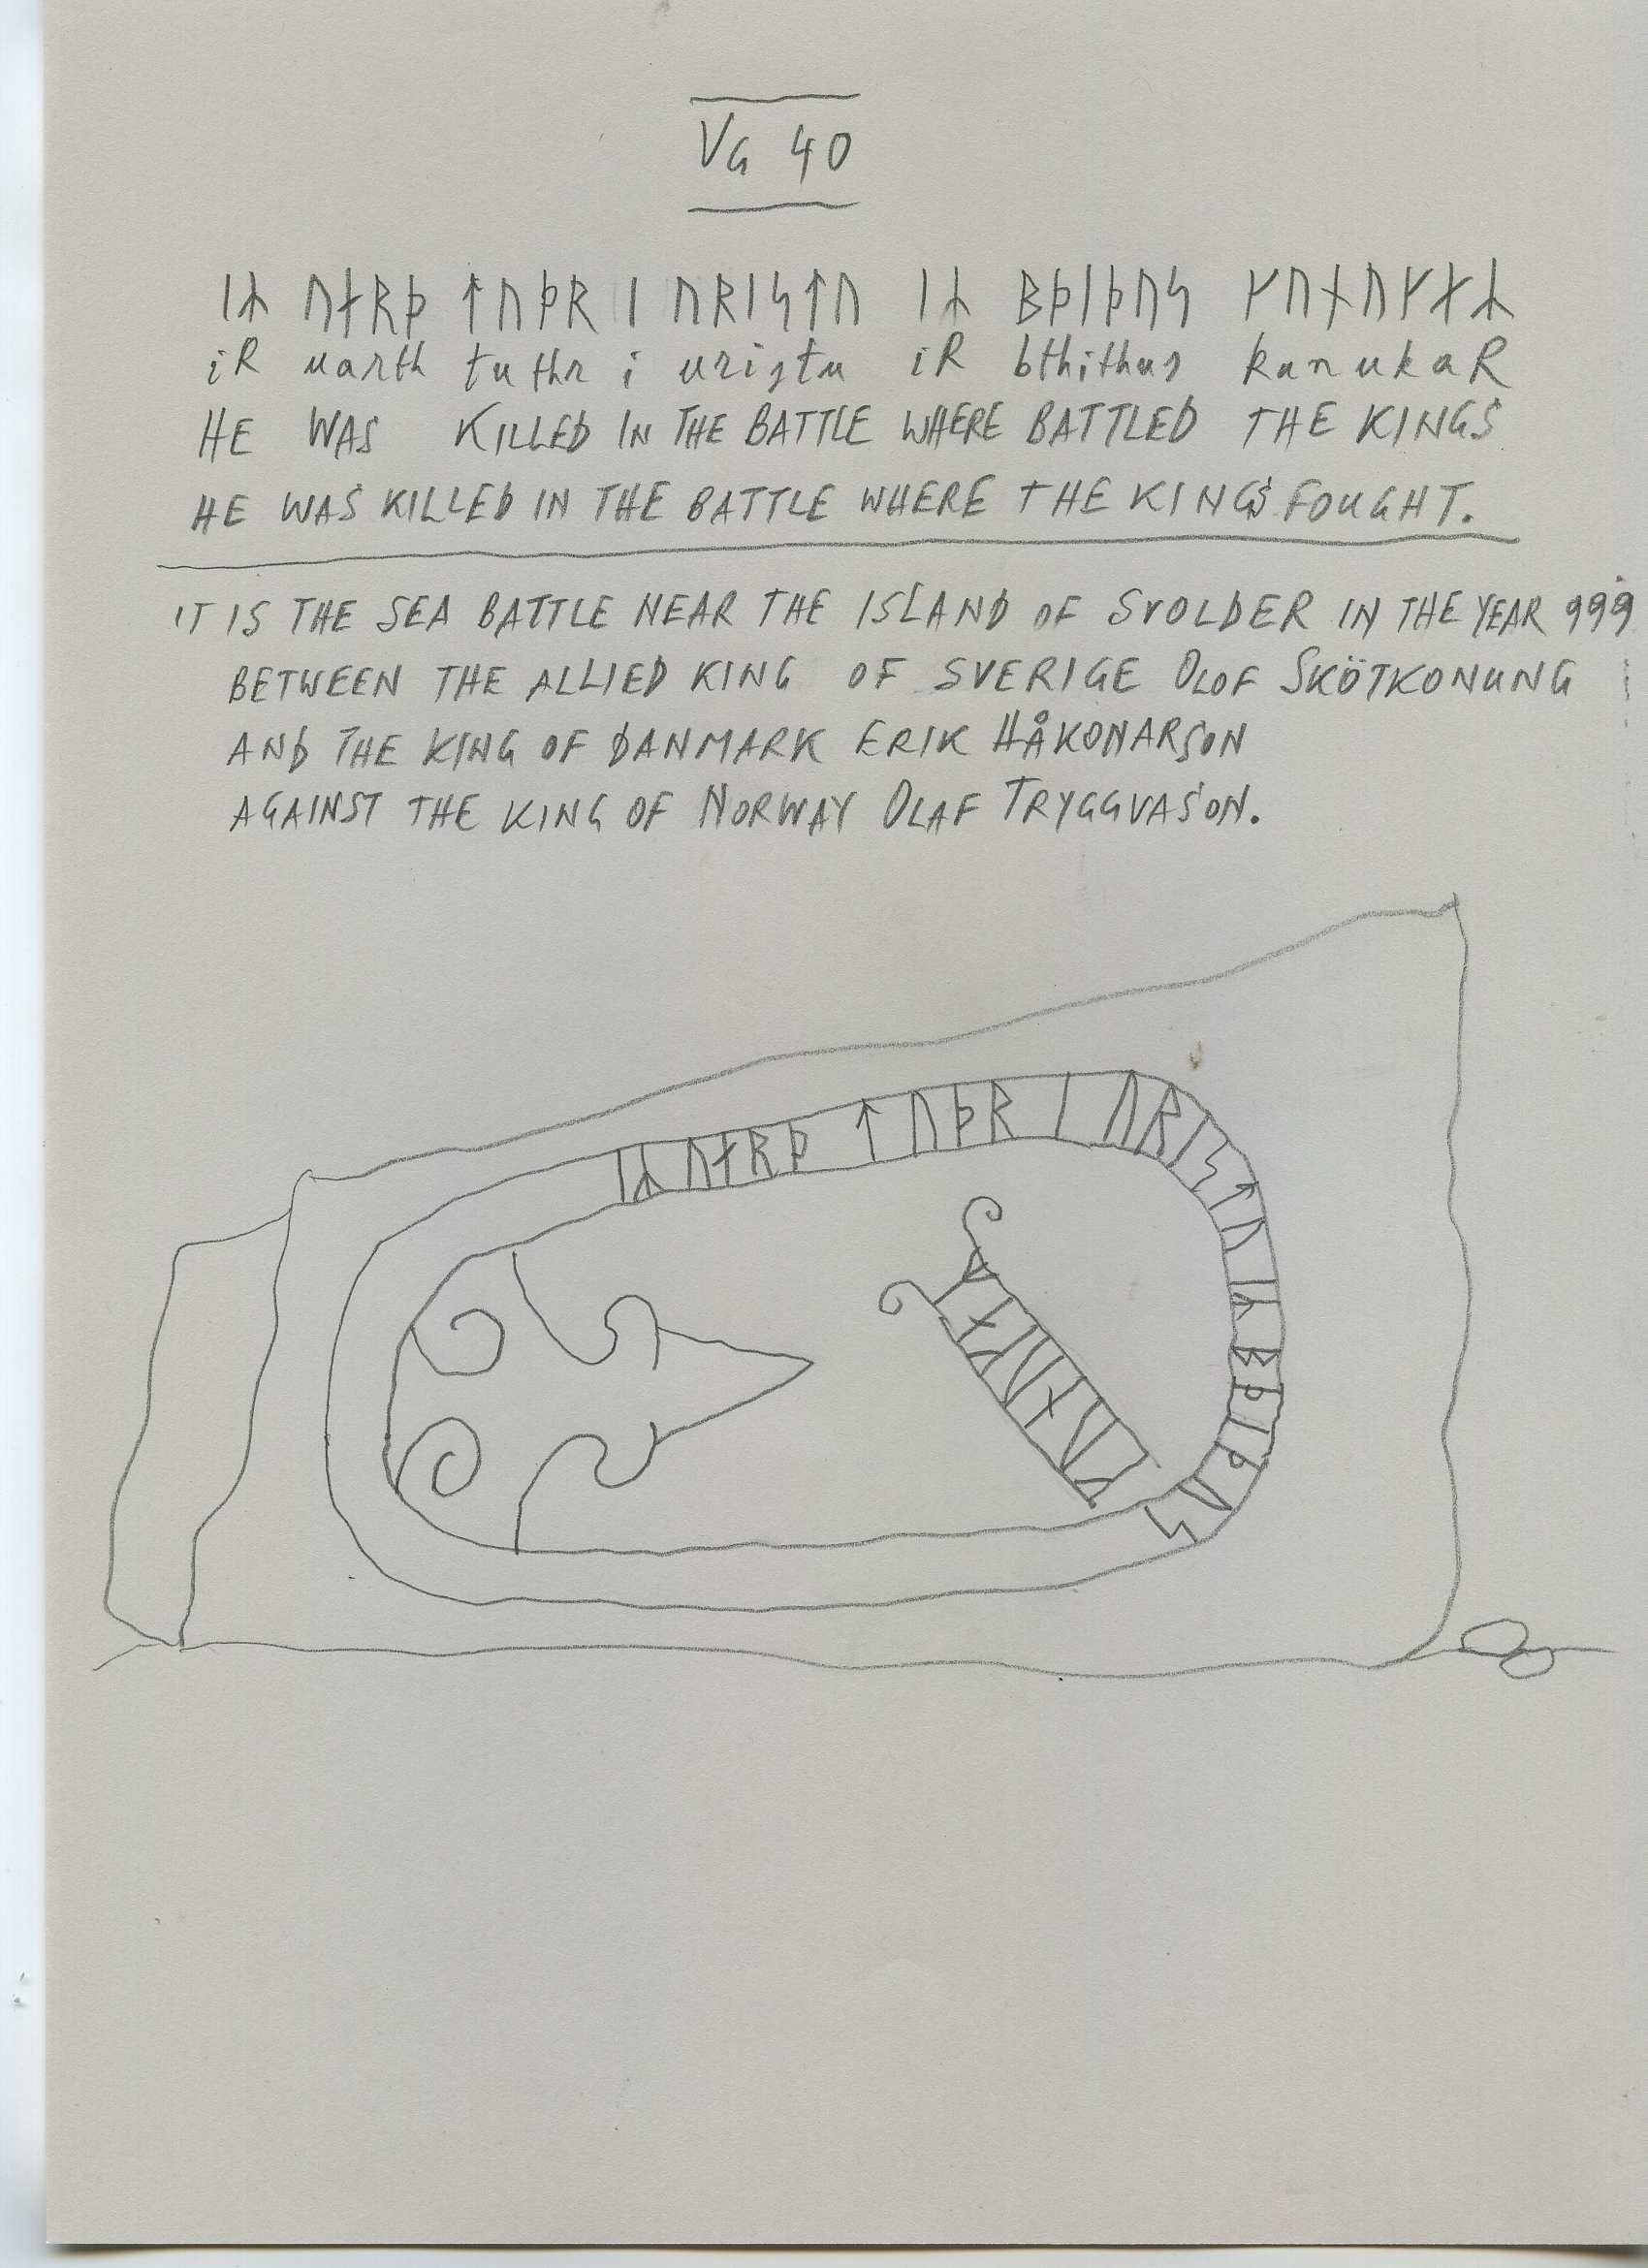 VG 40
ᛁᛦ ᚢᛅᚱᚦ ᛏᚢᚦᚱ ᛁ ᚢᚱᛁᛋᛏᚢ ᛁᛦ ᛒᚦᛁᚦᚢᛋ ᚴᚢᚾᚢᚴᛅᛦ
iR uarth tuthr i uristu iR bthithus kunukaR
HE WAS KILLED IN THE BATTLE WHERE BATTLED THE KINGS
HE WAS KILLED IN THE BATTLE WHERE THE KINGS FOUGHT.
IT IS THE SEA BATTLE NEAR THE ISLAND OF SVOLDER IN THE YEAR 999
BETWEEN THE ALLIED KING OF SVERIGE OLOF SKÖTKONUNG
AND THE KING OF DANMARK ERIK HÅKONARSON
AGAINST THE KING OF NORWAY OLAF TRYGGVASON.
ᛁᛦ ᚢᛅᚱᚦ ᛏᚢᚦᚱ ᛁ ᚢᚱᛁᛋᛏᚢ ᛁᛦ ᛒᚦᛁᚦᚢᛋ
ᚴᚢᚾᚢᚴᛅᛦ